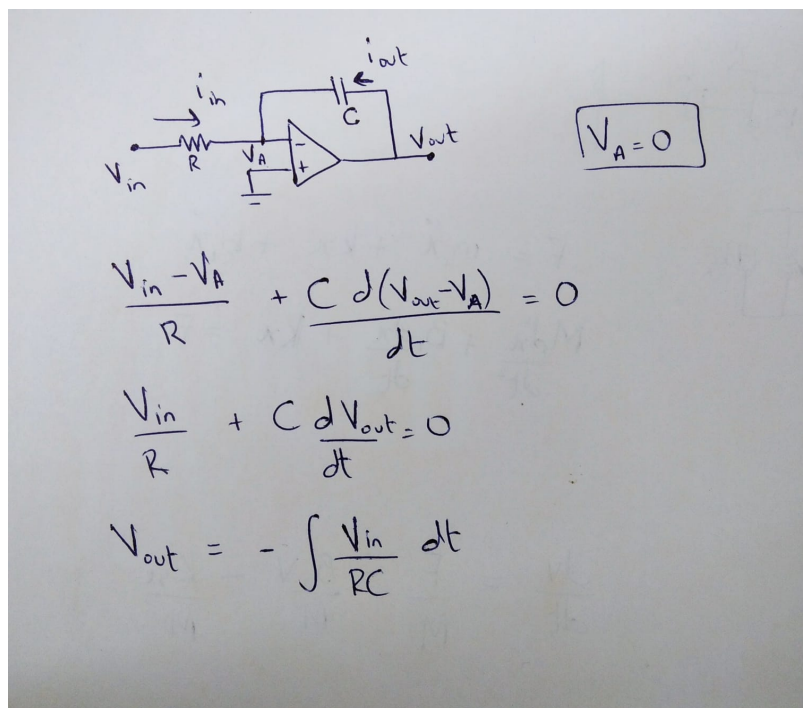 i_out
i_in
C
V_A = 0
V_in R V_A - + V_out
(V_in - V_A)/R + C d(V_out - V_A)/dt = 0
V_in/R + C dV_out/dt = 0
V_out = - ∫ V_in/RC dt